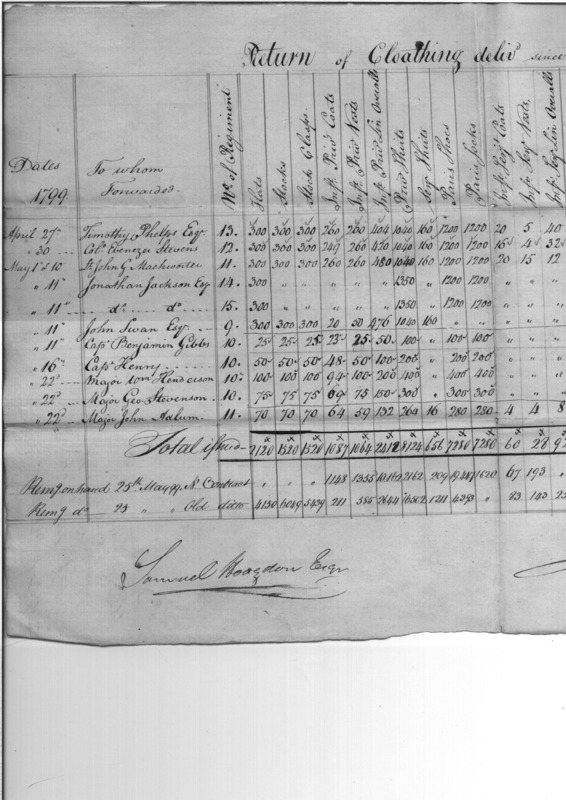 Return of Cloathing deliv'd since
Dates
1799.
To whom
Forwarded.
No. of Regiment
Hats
Stocks
Stock Clasps
Inf.y Priv. Coats
Inf.y Priv. Vests
Inf.y Priv. Lin. Overalls
Priv. Shirts
Serj. Shirts
Pairs Shoes
Pairs Socks
Inf.y Serj. Coats
Inf.y Serj. Vests
Inf.y Serj. Lin. Overalls
April 27 Timothy Phelps Esqr. 13. 300 300 300 260 260 404 1040 160 1200 1200 20 5 40
" 30 Colo. Ebenezer Stevens 12. 300 300 300 249 260 420 1040 160 1200 1200 16 4 32
May 1st & 10 John G 11. 300 300 300 260 260 480 1040 160 1200 1200 20 15 12
" 11th Jonathan Jackson Esq 14. 300 " " " " " 1350 " 1200 1200 " " "
" 11th do. do. 15. 300 " " " " " 1350 " 1200 1200 " " "
" 11th John Swan Esqr. 9. 300 300 300 20 50 476 1040 160 " " " " "
" 11th Capt Benjamin Gibbs 10. 25 25 25 23 25 50 100 " 100 100 " " "
" 16th Capt Henry 10. 50 50 50 48 50 100 200 " 200 200 " " "
" 22d Major Wm. Henderson 10. 100 100 100 94 100 200 400 " 400 400 " " "
" 22d Major Geo. Stevenson 10. 75 75 75 69 75 150 300 " 300 300 " " "
" 22d Major John Adlum 11. 70 70 70 64 59 132 264 16 280 280 4 4 8
Total issued 2120 1520 1520 1087 1064 2412 8124 656 7280 7280 60 28
Remg. on hand 25th May 99 No. Contract " " " 1148 1355 2162 209 1620 67 193 "
Remg do 25 " " Old ditto 4130 6049 5439 211 585 2644 1211 4393 " 23 143
Samuel Hodgdon Esqr